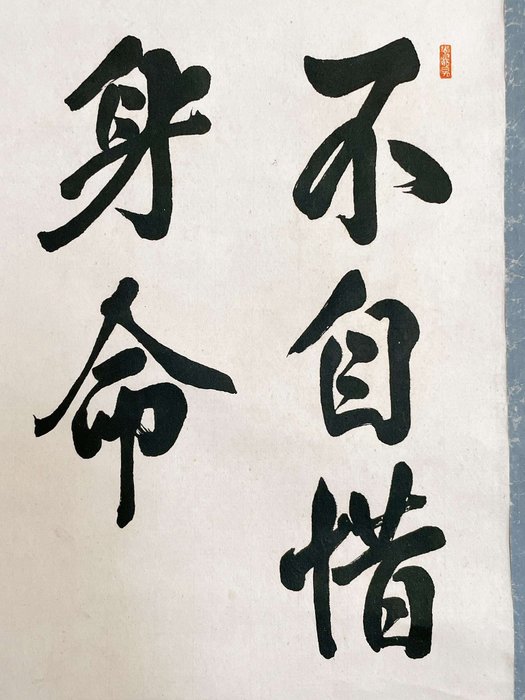 不自惜
身命